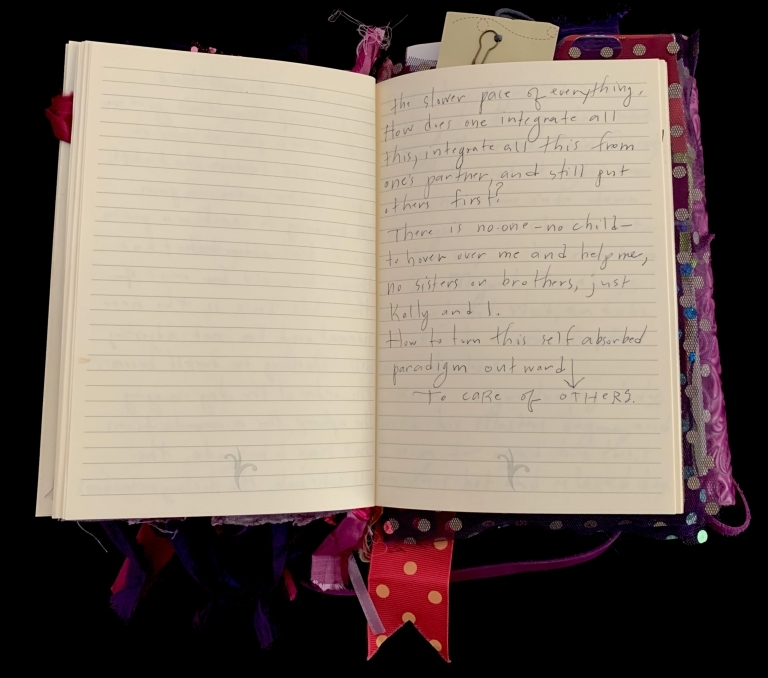 the slower pace of everything.
How does one integrate all
this, integrate all this from
one's partner, and still put
others first?
There is no-one - no child -
to hover over me and help me,
no sisters or brothers, just
Kolly and I.
How to turn this self absorbed
paradigm outward ↓
To caRe of OTHeRS.